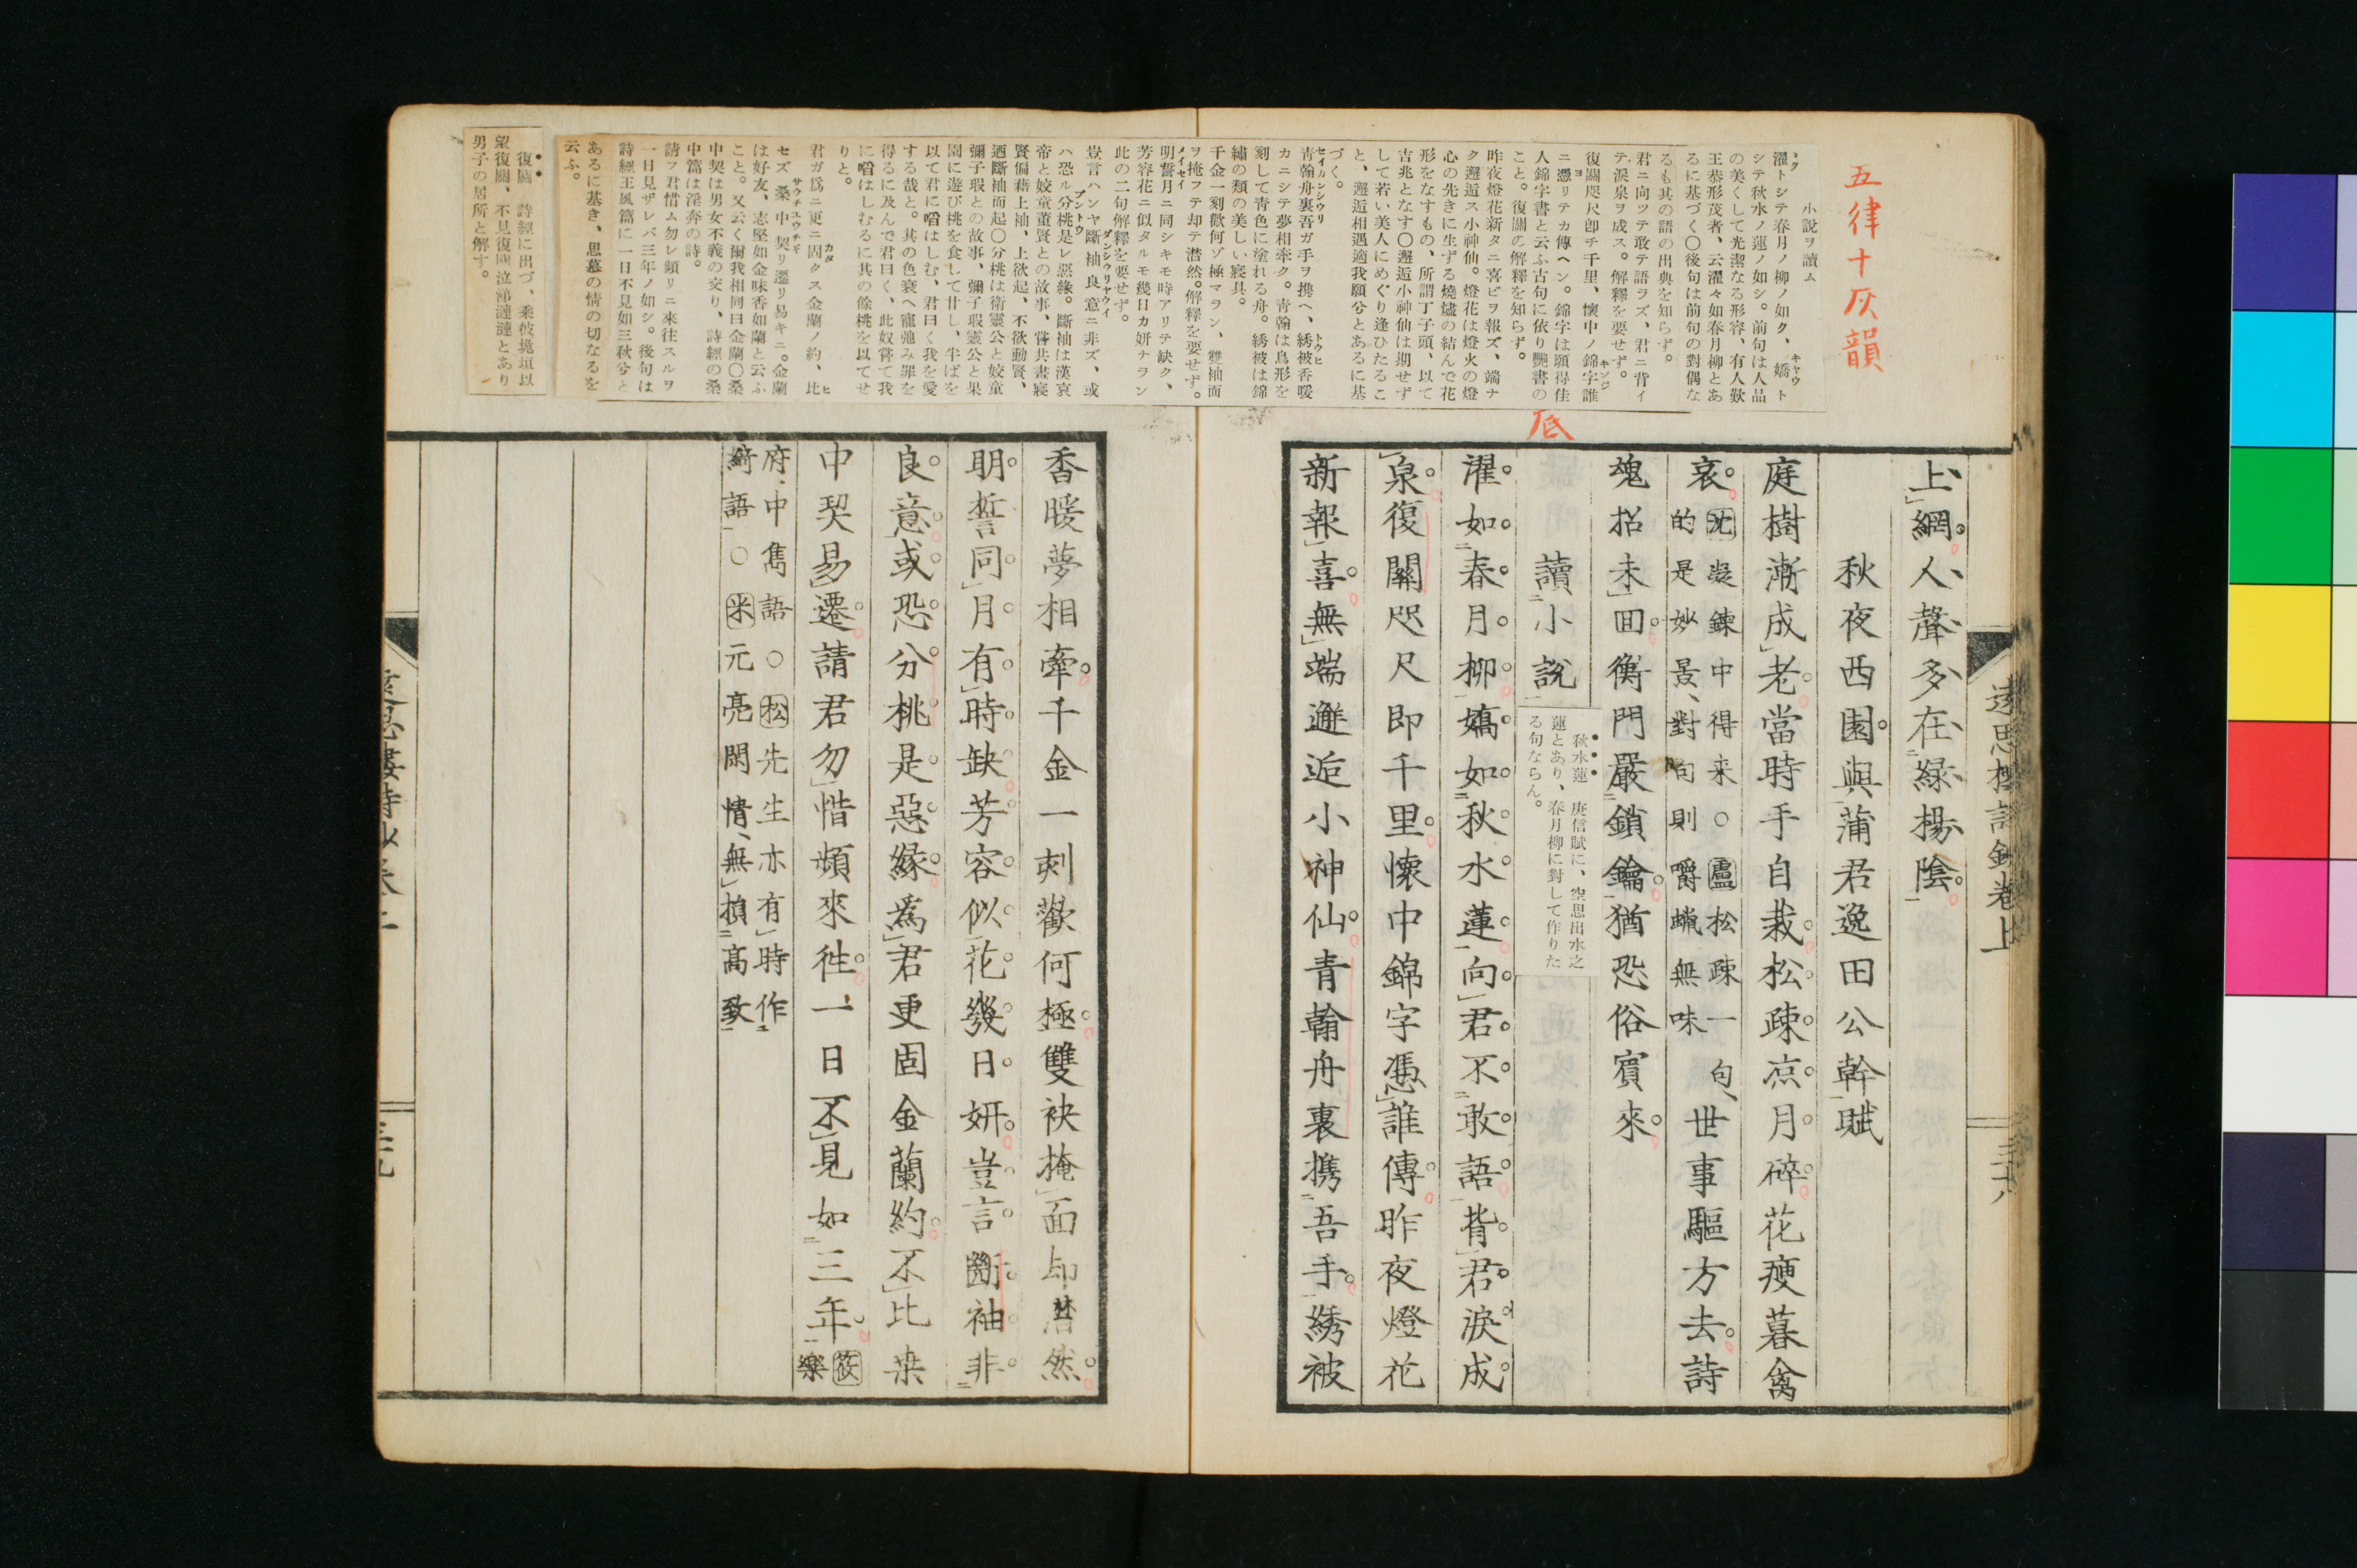 五律十灰韻
小説ヲ讀ム
濯トシテ春月ノ柳ノ如ク、嬌ト
シテ秋水ノ蓮ノ如シ。前句は人品
の美くして光潔なる形容、有人歎
王恭形茂者、云濯々如春月柳とあ
るに基づく〇後句は前句の對偶な
るも其の語の出典を知らず。
君ニ向ツテ敢テ語ラズ、君ニ背イ
テ涙泉ヲ成ス。解釋を要せず。
復關咫尺卽チ千里、懷中ノ錦字誰
ニ憑リテカ傳ヘン。錦字は願得佳
人錦字書と云ふ古句に依り艷書の
こと。復關の解釋を知らず。
昨夜燈花新タニ喜ビヲ報ズ、端ナ
ク邂逅ス小神仙。燈花は燈火の燈
心の先きに生ずる燒燼の結んで花
形をなすもの、所謂丁子頭、以て
吉兆となす〇邂逅小神仙は期せず
して若い美人にめぐり逢ひたるこ
と、邂逅相遇適我願兮とあるに基
づく。
青翰舟裏吾ガ手ヲ携ヘ、綉被香暖
カニシテ夢相牽ク。青翰は鳥形を
刻して青色に塗れる舟。綉被は錦
繡の類の美しい寢具。
千金一刻歡何ゾ極マラン、雙袖面
ヲ掩フテ却テ潛然。解釋を要せず。
明誓月ニ同シキモ時アリテ缺ク、
芳容花ニ似タルモ幾日カ妍ナラン
此の二句解釋を要せず。
豈言ハンヤ斷袖良意ニ非ズ、或
ハ恐ル分桃是レ惡緣。斷袖は漢哀
帝と姣童董賢との故事、嘗共晝寢
賢偏藉上袖、上欲起、不欲動賢、
迺斷袖而起〇分桃は衞靈公と姣童
彌子瑕との故事、彌子瑕靈公と果
園に遊び桃を食して甘し、半ばを
以て君に啗はしむ、君曰く我を愛
する哉と。其の色衰へ寵弛み罪を
得るに及んで君曰く、此奴嘗て我
に啗はしむるに其の餘桃を以てせ
りと。
君ガ爲ニ更ニ固クス金蘭ノ約、比
セズ桑中契リ遷リ易キニ。金蘭
は好友、志堅如金味香如蘭と云ふ
こと。又云く爾我相同曰金蘭〇桑
中契は男女不義の交り、詩經の桑
中篇は淫奔の詩。
請フ君惜ム勿レ頻リニ來往スルヲ
一日見ザレバ三年ノ如シ。後句は
詩經王風篇に一日不見如三秋兮と
あるに基き、思慕の情の切なるを
云ふ。
復關 詩經に出づ、乘彼垝垣以
望復關、不見復關泣涕漣漣とあり
男子の居所と解す。
上綱人聲多在綠楊陰
秋夜西園與蒲君逸田公幹賦
庭樹漸成老當時手自栽松疎凉月碎花瘦暮禽
哀沈凝鍊中得來〇盧松疎一句、
的是妙景、對句則嚼蠟無味
世事驅方去詩
魂招未回衡門嚴鎖鑰猶恐俗賓來
底
讀小説
秋水蓮 庾信賦に、空思出水之
蓮とあり、春月柳に對して作りた
る句ならん。
濯如春月柳嬌如秋水蓮向君不敢語背君淚成
泉復關咫尺即千里懷中錦字憑誰傳昨夜燈花
新報喜無端邂逅小神仙青翰舟裏携吾手綉被
遠思樓詩鈔卷上
三十八
香暖夢相牽千金一刻歡何極雙袂掩面却潛然
明誓同月有時缺芳容似花幾日妍豈言斷袖非
良意或恐分桃是惡緣爲君更固金蘭約不比桒
中契易遷請君勿惜頻來徃一日不見如三年筱樂
府中雋語〇松先生亦有時作
綺語〇米元亮閑情、無損高致
三十九